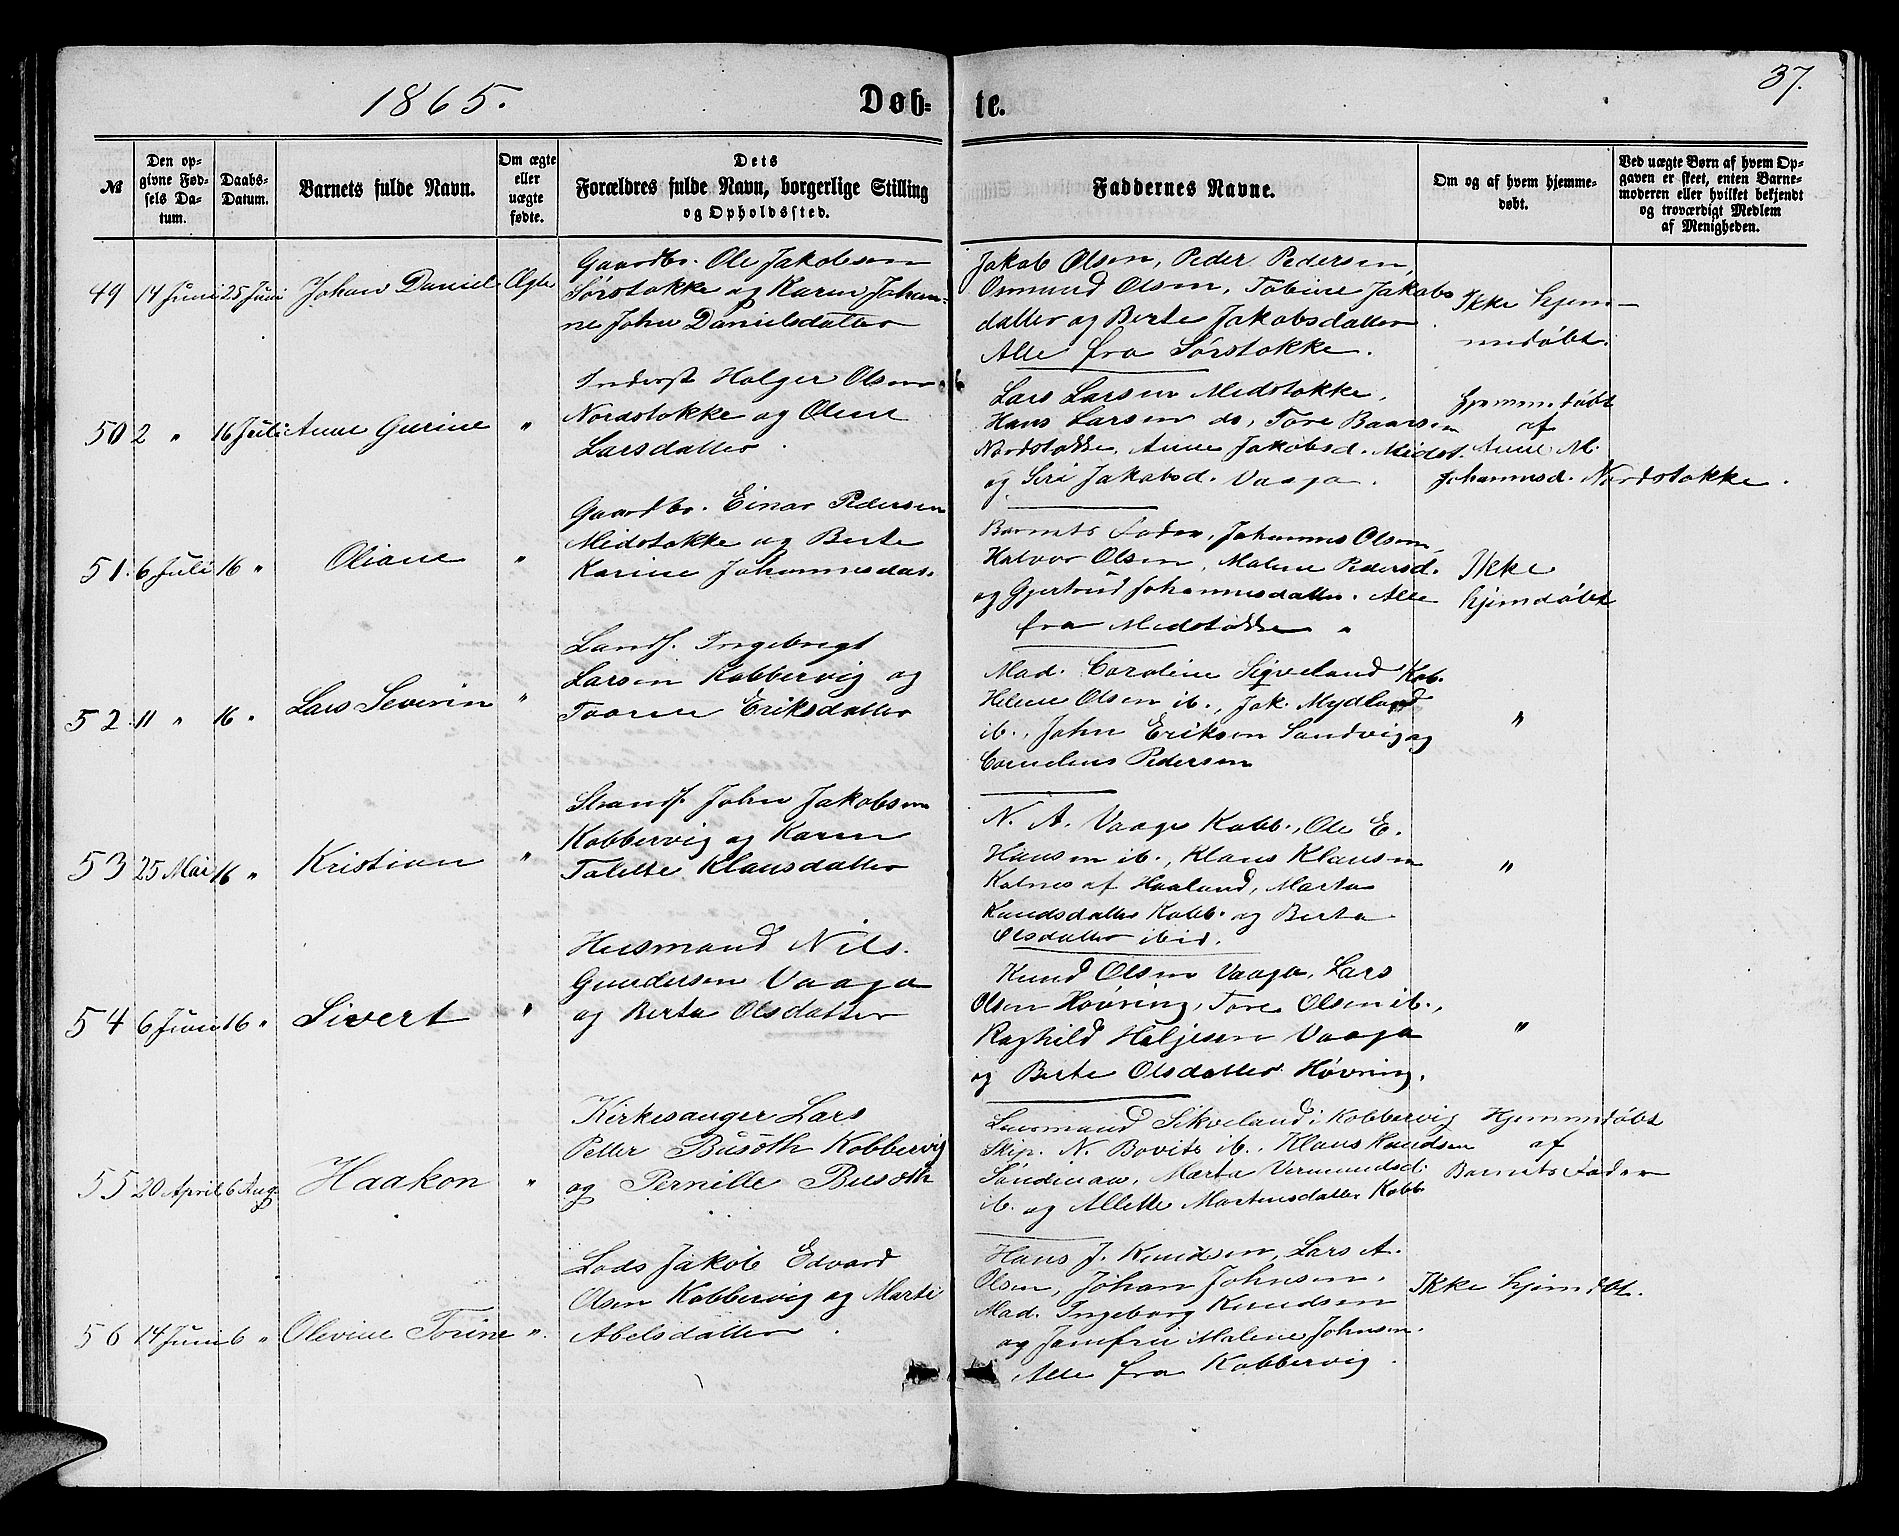 1865.
Døb-
te.
37.
№
Den op-
givne Fød-
sels Da-
tum.
Daabs-
Datum.
Barnets fulde Navn.
Om ægte
eller
uægte
fødte.
Dets
Forældres fulde Navn, borgerlige Stilling
og Opholdssted.
Faddernes Navne.
Om og af hvem hjemme-
døbt.
Ved uægte Børn af hvem Op-
gaven er skeet, enten Barne-
moderen eller hvilket bekjendt
og troværdigt Medlem
af Menigheden.
49 14 Juni 25 Juni Johan Daniel Ægte
Gaardbr. Ole Jakobsen
Sørstokke og Karen Johan-
ne John Danielsdatter
Jakob Olsen, Peder Pedersen,
Osmund Olsen, Tobine Jakobs
datter og Berte Jakobsdatter
Alle fra Sørstokke.
Ikke hjem-
medøbt.
50 2 " 16 Juli Anne Gurine "
Inderst Holger Olsen
Nordstokke og Oline
Larsdatter
Lars Larsen Midstokke,
Hans Larsen do, Tore Baarsen
Nordstokke, Anne Jakobsd. Midst.
og Siri Jakobsd. Vaaga.
Hjemmedøbt
af
Anne M.
Johannesd. Nordstokke.
51. 6 Juli 16 " Oliane "
Gaardbr. Einar Pedersen
Midstokke og Berte
Karine Johannesdat.
Barnets Fader, Johannes Olsen,
Halvor Olsen, Malene Pedersd.
og Gjertrud Johannesdatter. Alle
fra Midstokke
Ikke
hjemdøbt
52. 11 " 16 " Lars Severin "
Landh. Ingebregt
Larsen Kobbervig og
Taaren Eriksdatter
Mad. Caroline Sigveland Kob.
Helene Olsen ib., Jak. Mydland
ib., John Eriksen Sandvig og
Cornelius Pedersen
"
53 25 Mai 16 " Kristian "
Strands. John Jakobsen
Kobbervig og Karen
Talette Klausdatter
N. A. Vaage Kobb., Ole E.
Hansen ib., Klaus Klausen
Kalnes af Haaland, Marta
Knudsdatter Kobb. og Berta
Olsdatter ibid.
"
54 6 Juni 16 " Sivert "
Husmand Nils
Gundersen Vaaga
og Berta Olsdatter
Knud Olsen Vaaga, Lars
Olsen Høvring, Tore Olsen ib.,
Raghild Heljesen Vaaga
og Berte Olsdatter Høvring.
"
55 20 April 6 Aug. Haakon "
Kirkesanger Lars
Petter Busøth Kobbervig
og Pernille Busøth
Lensmand Sikveland i Kobbervig
Skip. N. Bovits ib., Klaus Knudsen
Marta Vermundsd.
ib. og Allette Mortensdatter Kobb.
Hjemmedøbt
af
Barnets Fader
56 14 Juni 6 " Olevine Torine "
Lods Jakob Edvard
Olsen Kobbervig og Marti
Abelsdatter
Hans J. Knudsen, Lars A.
Olsen, Johan Johnsen.
Mad. Ingeborg Knudsen
og Jomfru Malene Johnsen.
Alle fra Kobbervig.
Ikke hjemdbt.